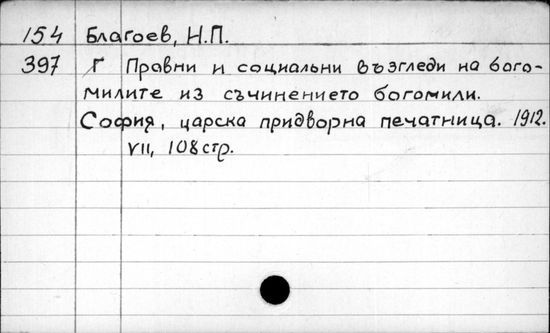 154 Благоев, Н.П.
397 Г Правни и социальни възгледи на бого-
милите из съчинението богомили.
София, царска придворна печатница. 1912.
VII, 108 стр.